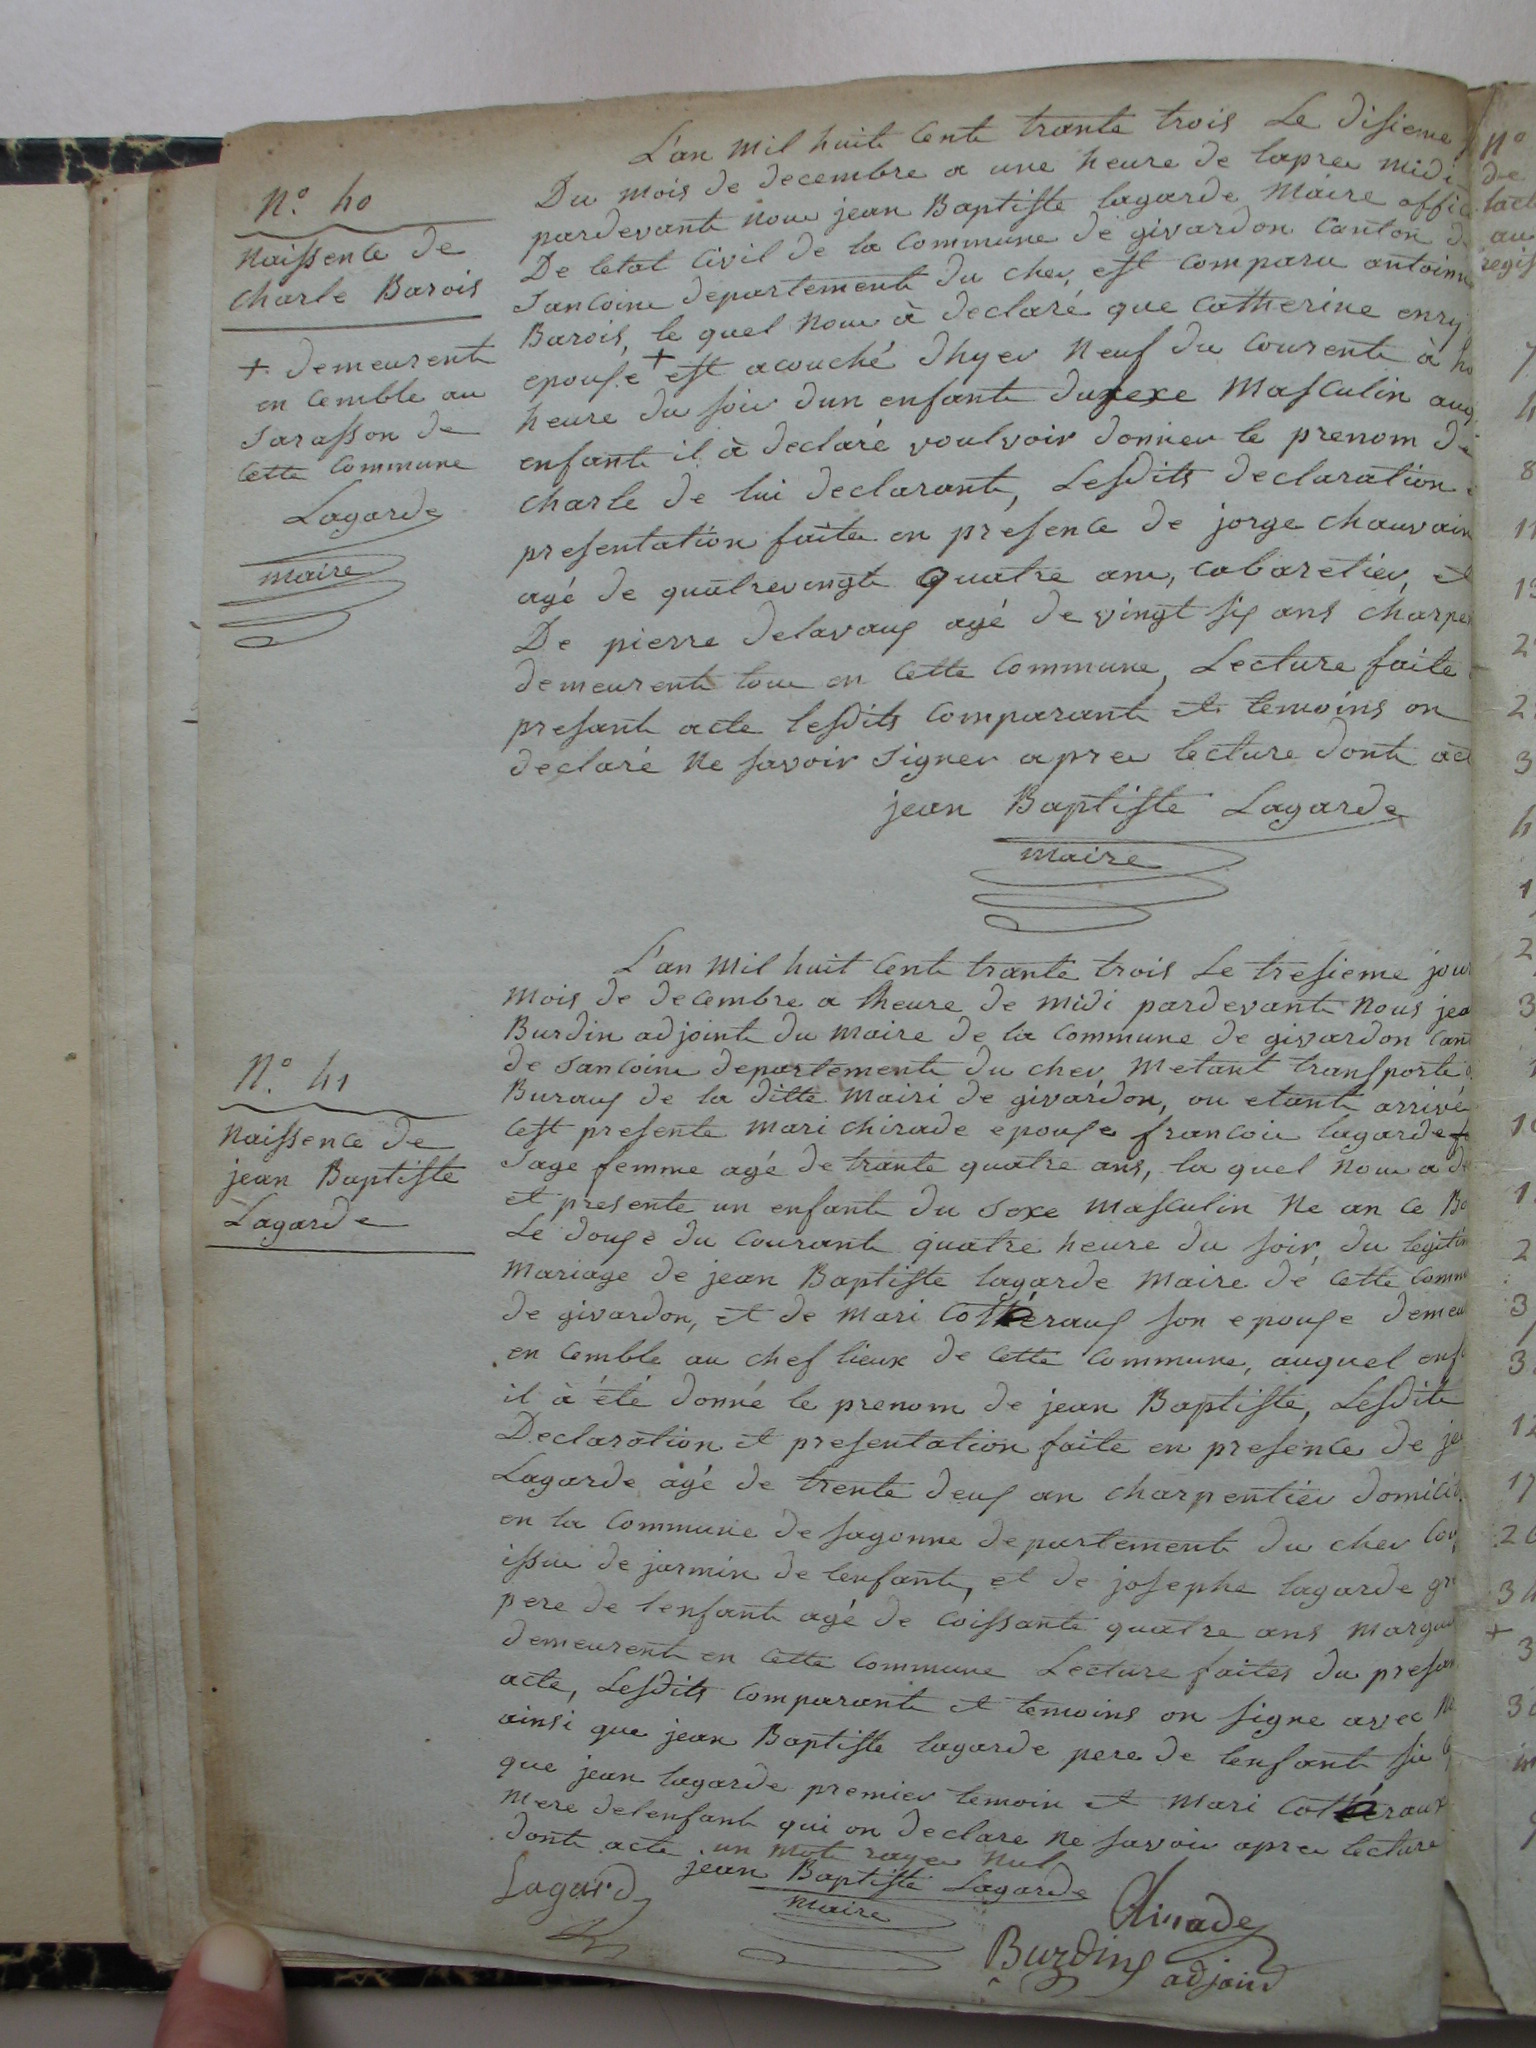 N.° 40
Naissence de
charle Barois
+ demeurente
en cemble au
Sarasson de
cette commune
Lagarde
maire
L'an mil huit cent trante trois Le disieme
Du mois de decembre a une heure de lapres midi
pardevante nous jean Baptiste lagarde Maire offic
De letat civil de la commune de givardon canton de
Sancoins departement du cher, est comparu antoine
Barois, le quel nous à declaré que catherine enry
epouse + est acouché dhyer neuf du courente à
heure du soir dun enfante du sexe Masculin auq
enfante il à declaré voulvoir donner le prenom de
charle de lui declarante, Lesdits declaration
presentation faite en présence de jorge chauvain
agé de quatrevingt quatre ans, cabaretier, et
De pierre delavaux agé de vingt six ans charpe
demeurente tous en cette commune, Lecture faite
presant acte lesdits comparant et temoins on
declaré ne savoir signer apres lecture dont act
jean Baptiste Lagarde
maire
N.° 41
Naissence de
jean Baptiste
Lagarde
L'an mil huit cent trante trois Le tresieme jour
mois de decembre a lheure de midi pardevante nous jea
Burdin adjointe du maire de la commune de givardon can
de sancoins departemente du cher, Metant transporte
Buraux de la ditte mairi de givardon, ou etante arrivé
cest presente mari chirade epouse francois lagarde
Sage femme agé de trante quatre ans, la quel nous a de
et presente un enfante du sexe masculin ne an ce Bo
Le douse du courante quatre heure du soir, du legitim
mariage de jean Baptiste lagarde maire de cette comm
de givardon, et de mari cotheraux son epouse demeu
en cemble au chef lieux de cette commune, auquel enf
il à été donné le prenom de jean Baptiste, Lesdite
Declaration et presentation faite en presence de je
Lagarde agé de trente deux an charpentier domicié
en la commune de sagonne departemente du cher cou
issue de jarmin de lenfante, et de josephe lagarde gr
pere de lenfante agé de coissante quatre ans
demeurente en cette commune Lecture faites du presan
acte, Lesdits comparante et temoins on signe avec N
ainsi que jean Baptiste lagarde pere de lenfante
que jean lagarde premier temoin et mari cotheraux
mere delenfant qui on declare ne savoir apres lecture
dont acte un mot rayer nul
Lagarde
jean Baptiste Lagarde
maire
Chirade
Burdin adjoin
N°
de
lact
au
regis